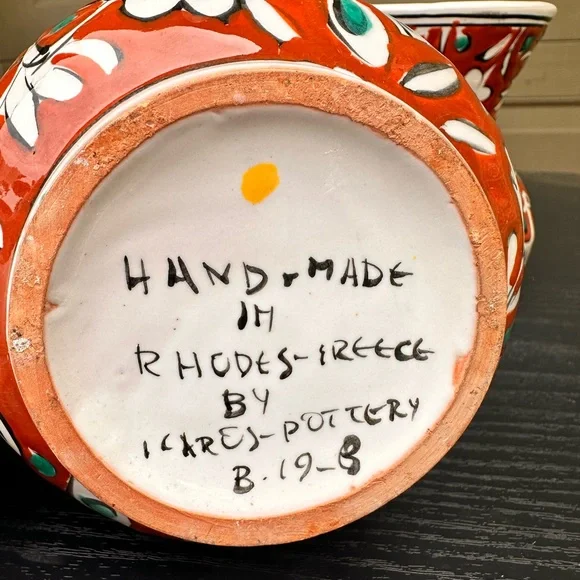 HAND-MADE
IN
RHODES-GREECE
BY
ICAROS-POTTERY
B.19-8